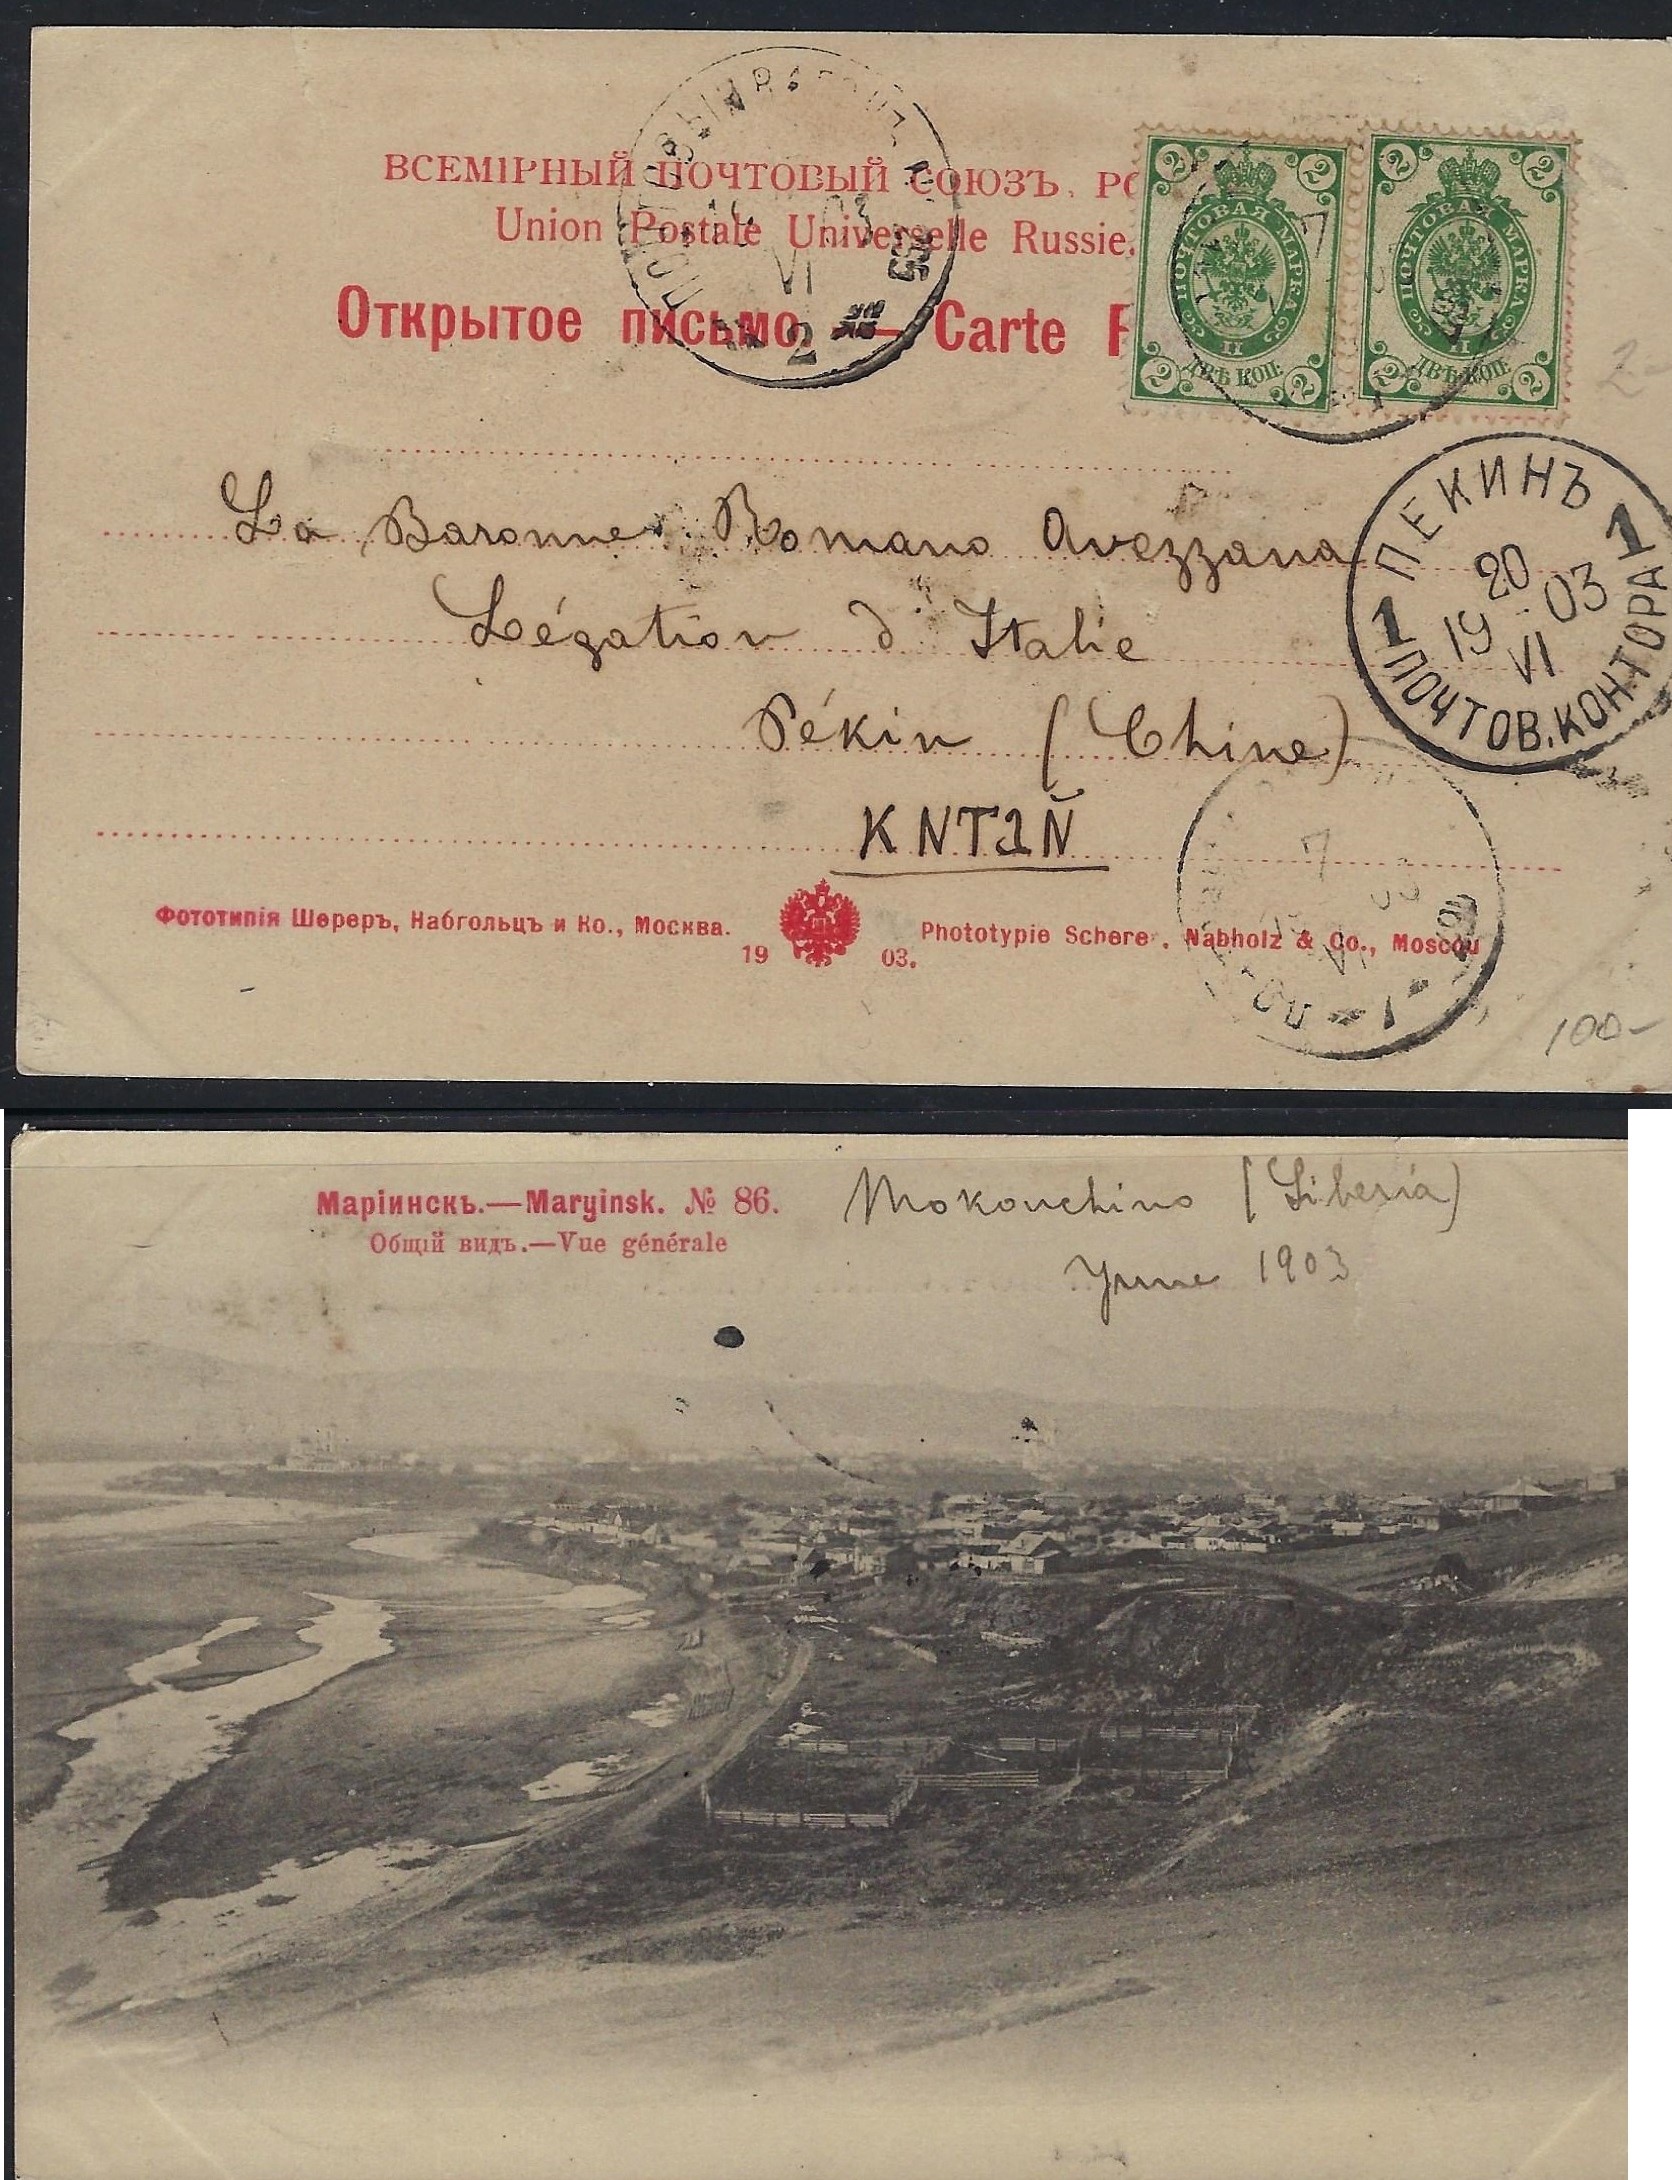 ВСЕМІРНЫЙ ПОЧТОВЫЙ СОЮЗЪ. РО
Union Postale Universelle Russie.
Открытое письмо. — Carte P
2 2
ПОЧТОВАЯ МАРКА
ДВѢ КОП.
2 2
2 2
ПОЧТОВАЯ МАРКА
ДВѢ КОП.
2 2
03
VI
2
2-
La Baronne Romano Avezzana
Légation d'Italie
Pékin (Chine)
KNTaЙ
ПЕКИНЪ
1 1
20
19 03
VI
ПОЧТОВ. КОНТОРА
Фототипія Шереръ, Набгольцъ и Ко., Москва.
19 03.
Phototypie Scherer, Nabholz & Co., Moscou
100-
Маріинскъ.—Maryinsk. № 86.
Общій видъ.—Vue générale
Mokouchino (Siberia)
Yune 1903